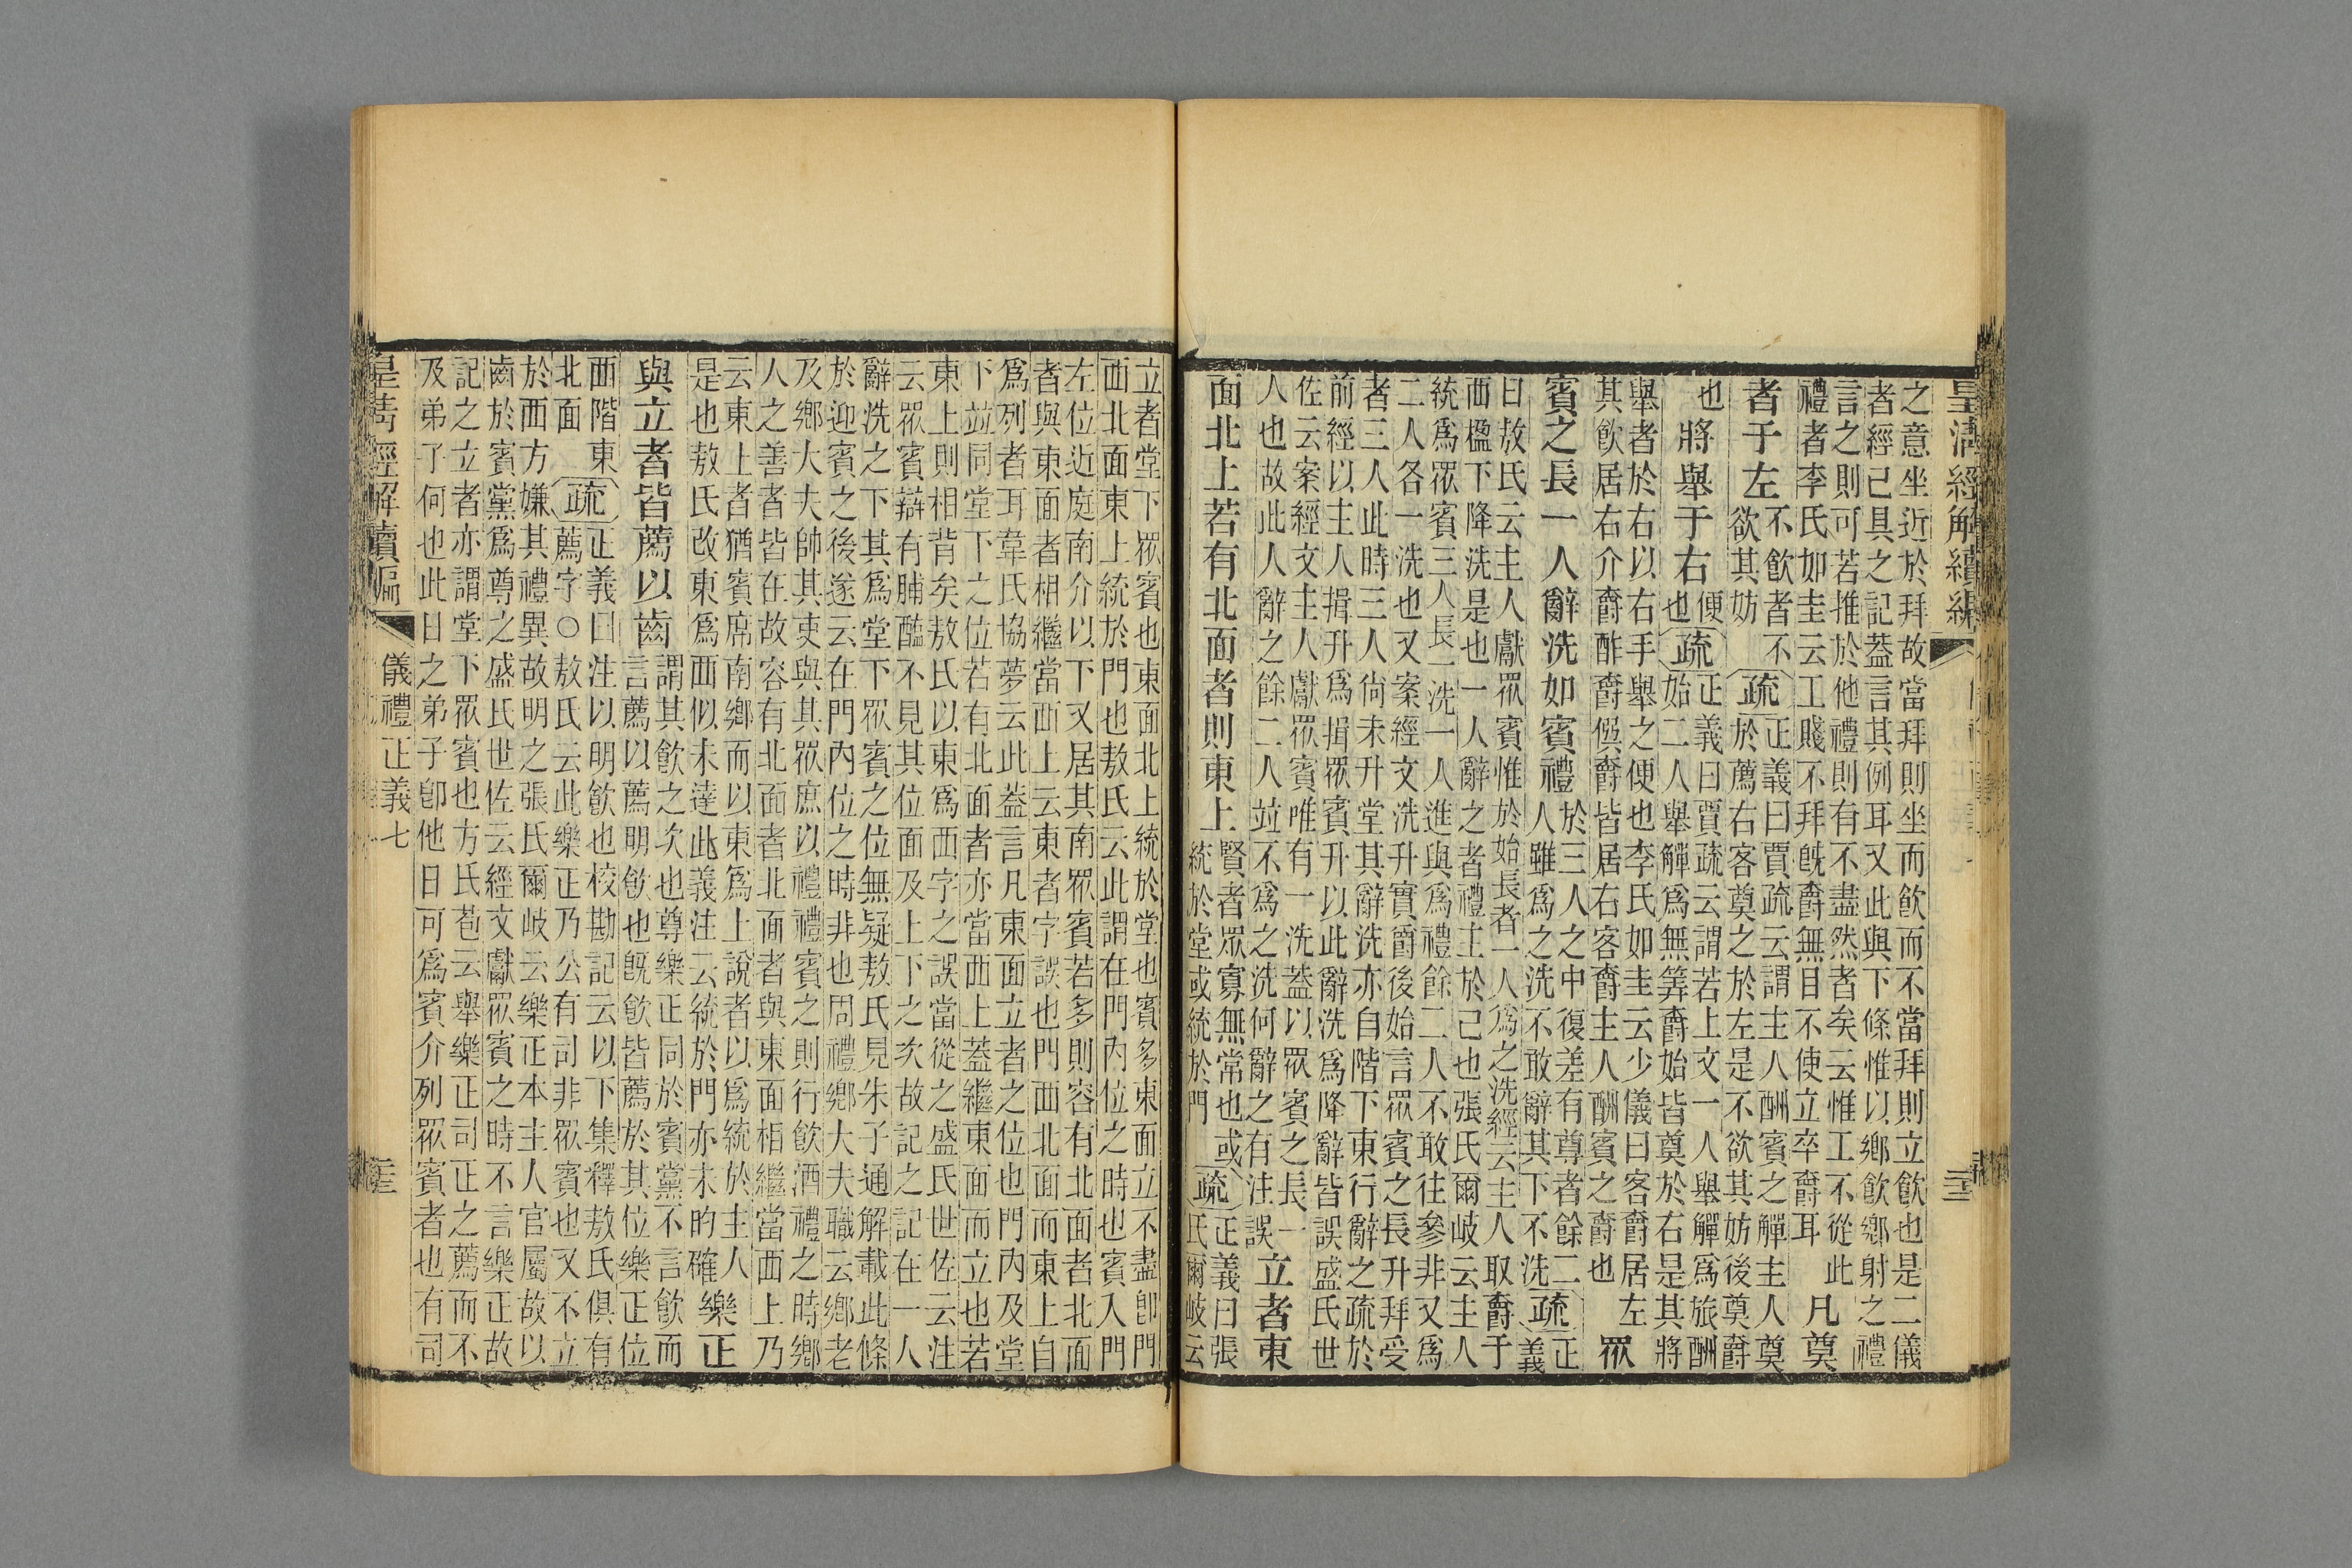 皇清經解續編
之意坐近於拜故當拜則坐而飲而不當拜則立飲也是二儀
者經已具之記蓋言其例耳又此與下條惟以鄉飲鄉射之禮
言之則可若推於他禮則有不盡然者矣云惟工不從此
禮者李氏如圭云工賤不拜旣爵無目不使立卒爵耳 凡奠
者于左 不飲者不欲其妨 疏 正義曰賈疏云謂主人酬賓之觶主人奠於薦右客奠之於左是不欲其妨後奠爵
也 將舉于右 便也 疏 正義曰賈疏云謂若上文一人舉觶爲旅酬始二人舉觶爲無筭爵始皆奠於右是其將
舉者於右以右手舉之便也李氏如圭云少儀曰客爵居左
其飮居右介爵酢爵僎爵皆居右客爵主人酬賓之爵也 衆
賓之長一人辭洗如賓禮 於三人之中復差有尊者餘二人雖爲之洗不敢辭其下不洗 疏 正義
曰敖氏云主人獻衆賓惟於始長者一人爲之洗經云主人取爵于
西楹下降洗是也一人辭之者禮主於己也張氏爾岐云主人
統爲衆賓三人長一洗一人進與爲禮餘二人不敢往參非又爲
二人各一洗也又案經文洗升實爵後始言衆賓之長升拜受
者三人此時三人尙未升堂其辭洗亦自階下東行辭之疏於
前經以主人揖升爲揖衆賓升以此辭洗爲降辭皆誤盛氏世
佐云案經文主人獻衆賓唯有一洗蓋以衆賓之長一
人也故此人辭之餘二人竝不爲之洗何辭之有注誤 立者東
面北上若有北面者則東上 賢者眾寡無常也或統於堂或統於門 疏 正義曰張氏爾岐云
立者堂下衆賓也東面北上統於堂也賓多東面立不盡卽門
西北面東上統於門也敖氏云此謂在門內位之時也賓入門
左位近庭南介以下又居其南衆賓若多則容有北面者北面
者與東面者相繼當西上云東者字誤也門西北面而東上自
爲列者耳韋氏協夢云此蓋言凡東面立者之位也門內及堂
下竝同堂下之位若有北面者亦當西上蓋繼東面而立也若
東上則相背矣敖氏以東爲西字之誤當從之盛氏世佐云注
云衆賓辯有脯醢不見其位面及上下之次故記之記在一人
辭洗之下其爲堂下衆賓之位無疑敖氏見朱子通解載此條
於迎賓之後遂云在門內位之時非也周禮鄉大夫職云鄉老
及鄉大夫帥其吏與其衆庶以禮禮賓之則行飲酒禮之時鄉
人之善者皆在故容有北面者北面者與東面相繼當西上乃
云東上者猶賓席南鄉而以東爲上說者以爲統於主人
是也敖氏改東爲西似未達此義注云統於門亦未的確 樂正
與立者皆薦以齒 謂其飲之次也尊樂正同於賓黨不言飲而言薦以薦明飲也旣飲皆薦於其位樂正位
西階東北面 疏 正義曰注以明飲也校勘記云以下集釋敖氏俱有薦字○敖氏云此樂正乃公有司非衆賓也又不立
於西方嫌其禮異故明之張氏爾岐云樂正本主人官屬故以
齒於賓黨爲尊之盛氏世佐云經文獻衆賓之時不言樂正故
記之立者亦謂堂下衆賓也方氏苞云舉樂正司正之薦而不
及弟子何也此日之弟子卽他日可爲賓介列衆賓者也有司
皇清經解續編 儀禮正義七